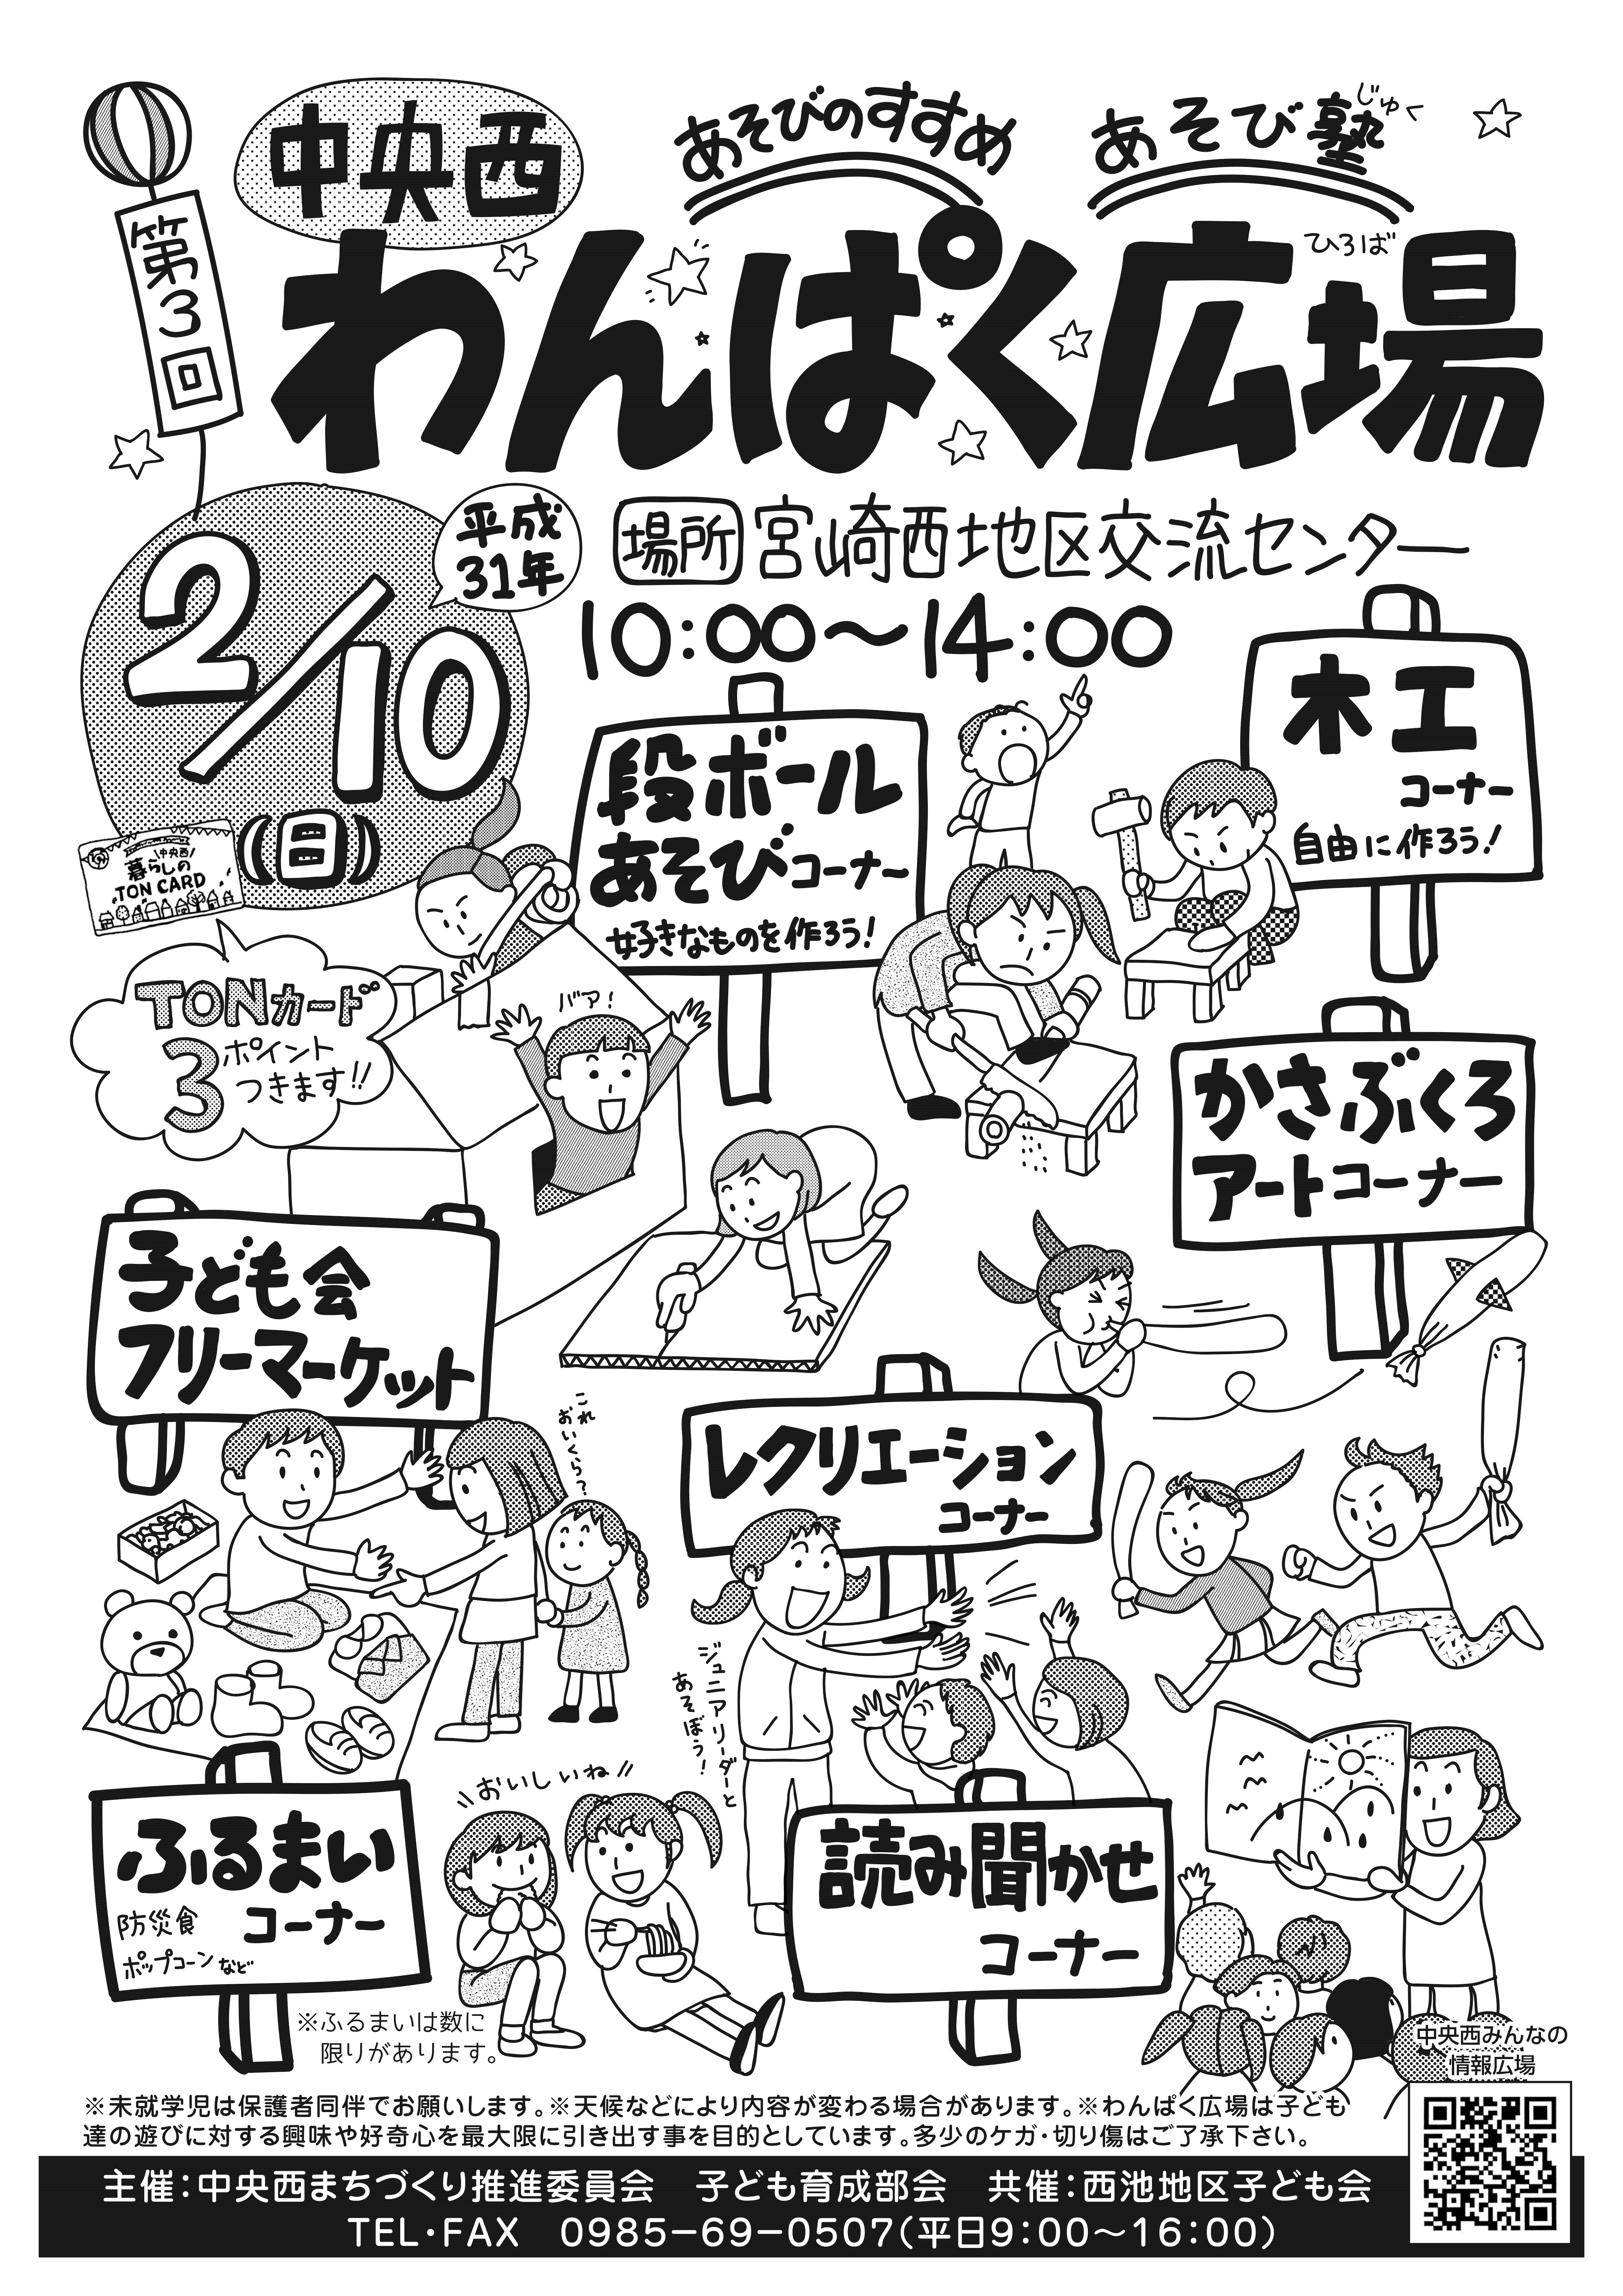 第3回
中央西
あそびのすすめ
あそび塾
じゅく
わんぱく広場
ひろば
2/10
(日)
平成
31年
場所 宮崎西地区交流センター
10:00〜14:00
木工
コーナー
自由に作ろう!
段ボール
あそびコーナー
好きなものを作ろう!
中央西
暮らしの
TON CARD
TONカード
3ポイント
つきます!!
バァ!
かさぶくろ
アートコーナー
子ども会
フリーマーケット
これ
おいくら?
レクリエーション
コーナー
ジュニアリーダーと
あそぼう!
ふるまい
コーナー
防災食
ポップコーンなど
おいしいね!!
読み聞かせ
コーナー
※ふるまいは数に
限りがあります。
中央西みんなの
情報広場
※未就学児は保護者同伴でお願いします。※天候などにより内容が変わる場合があります。※わんぱく広場は子ども
達の遊びに対する興味や好奇心を最大限に引き出す事を目的としています。多少のケガ・切り傷はご了承下さい。
主催:中央西まちづくり推進委員会 子ども育成部会 共催:西池地区子ども会
TEL・FAX 0985−69−0507(平日9:00〜16:00)